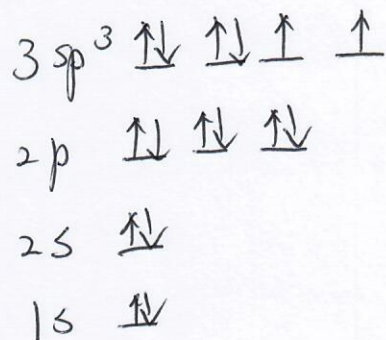 3 sp³ ⥮ ⥮ ↑ ↑
2p ⥮ ⥮ ⥮
2s ⥮
1s ⥮